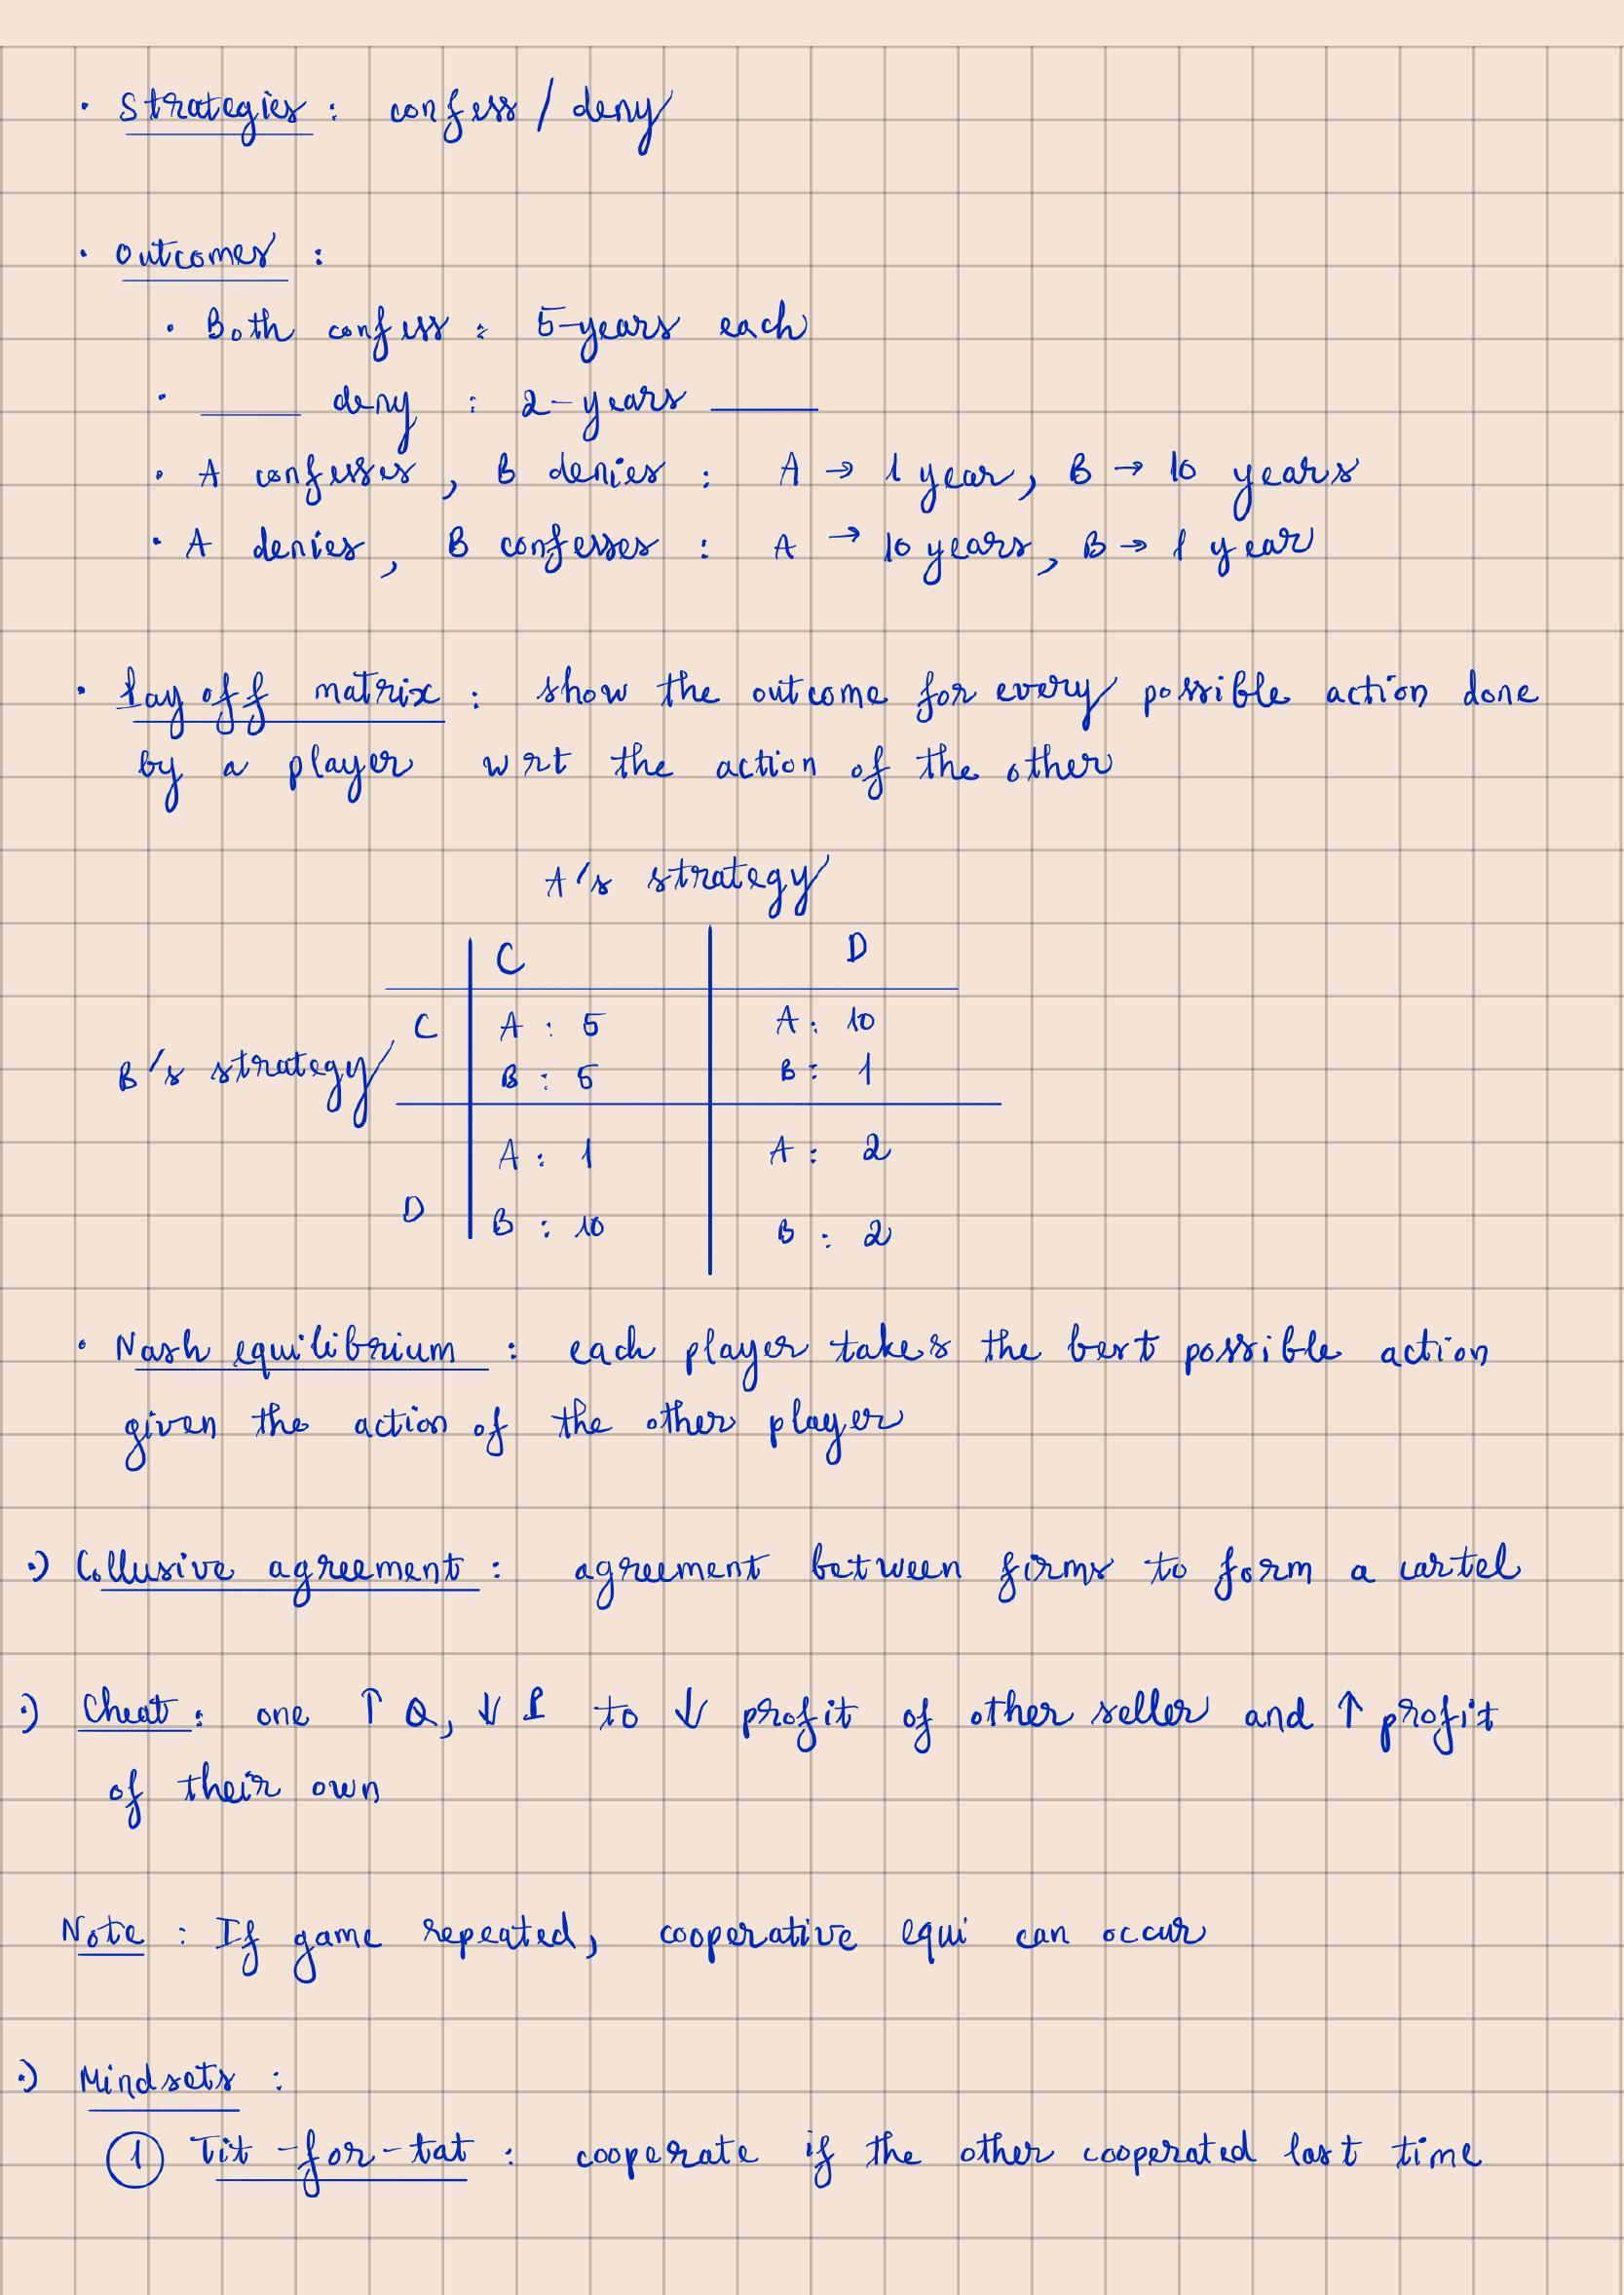 · Strategies : confess / deny
· Outcomes :
· Both confess : 5-years each
· —— deny : 2-years ——
· A confesses , B denies : A → 1 year, B → 10 years
· A denies, B confesses : A → 10 years, B → 1 year
· Pay off matrix : show the outcome for every possible action done
by a player wrt the action of the other
A's strategy
C D
C A : 5 A : 10
B's strategy B : 5 B : 1
A : 1 A : 2
D B : 10 B : 2
· Nash equilibrium : each player takes the best possible action
given the action of the other player
·) Collusive agreement : agreement between firms to form a cartel
·) Cheat : one ↑ Q, ↓ P to ↓ profit of other seller and ↑ profit
of their own
Note : If game repeated, cooperative equi can occur
·) Mindsets :
① Tit-for-tat : cooperate if the other cooperated last time